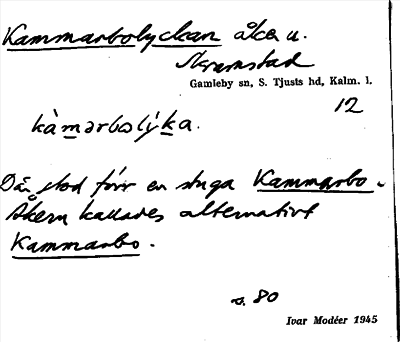 Kammarbolyckan åker u.
Skramstad
Gamleby sn, S. Tjusts hd, Kalm. l.
12
kàmarbolýka.
Där stod förr en stuga Kammarbo.
Åkern kallades alternativt
Kammarbo.
s. 80
Ivar Modéer 1945